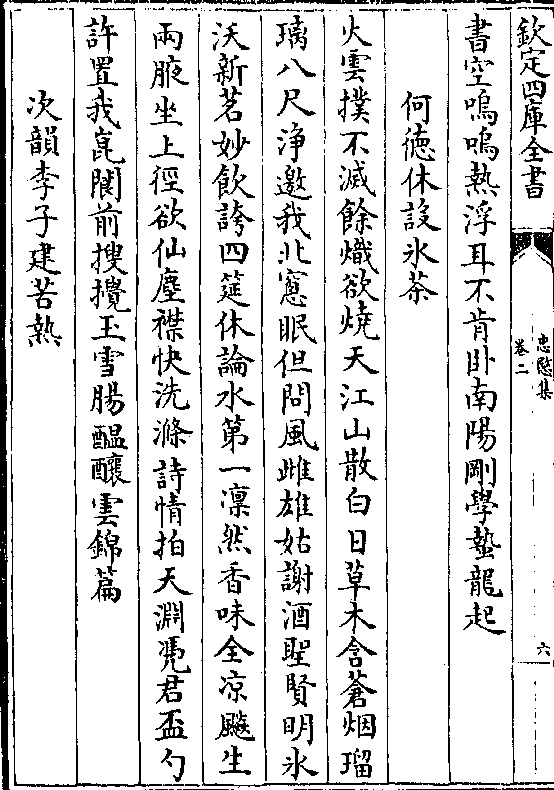 欽定四庫全書
忠愍集
卷二
六
書空嗚嗚熱浮耳不肯臥南陽剛學蟄龍起
何徳休設氷茶
火雲撲不滅餘熾欲燒天江山散白日草木含蒼烟瑠
璃八尺浄邀我北窻眠但問風雌雄姑謝酒聖賢明氷
沃新茗妙飲誇四筵休論水第一凛然香味全凉颷生
兩腋坐上徑欲仙塵襟快洗滌詩情拍天淵凴君盃勺
許置我崑閬前搜攪玉雪腸醖釀雲錦篇
次韻李子建苦熱